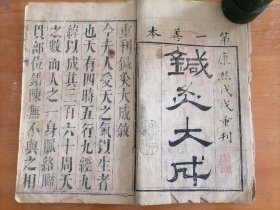 第一善本
康熙戊戌重刊
鍼灸大成
重刊鍼灸大成敘
今夫人受天之氣以生者
也天有四時五行九經九
緯以成其三百六十周天
之數而人之一身脈絡聯
貫部位錯陳無不與之相